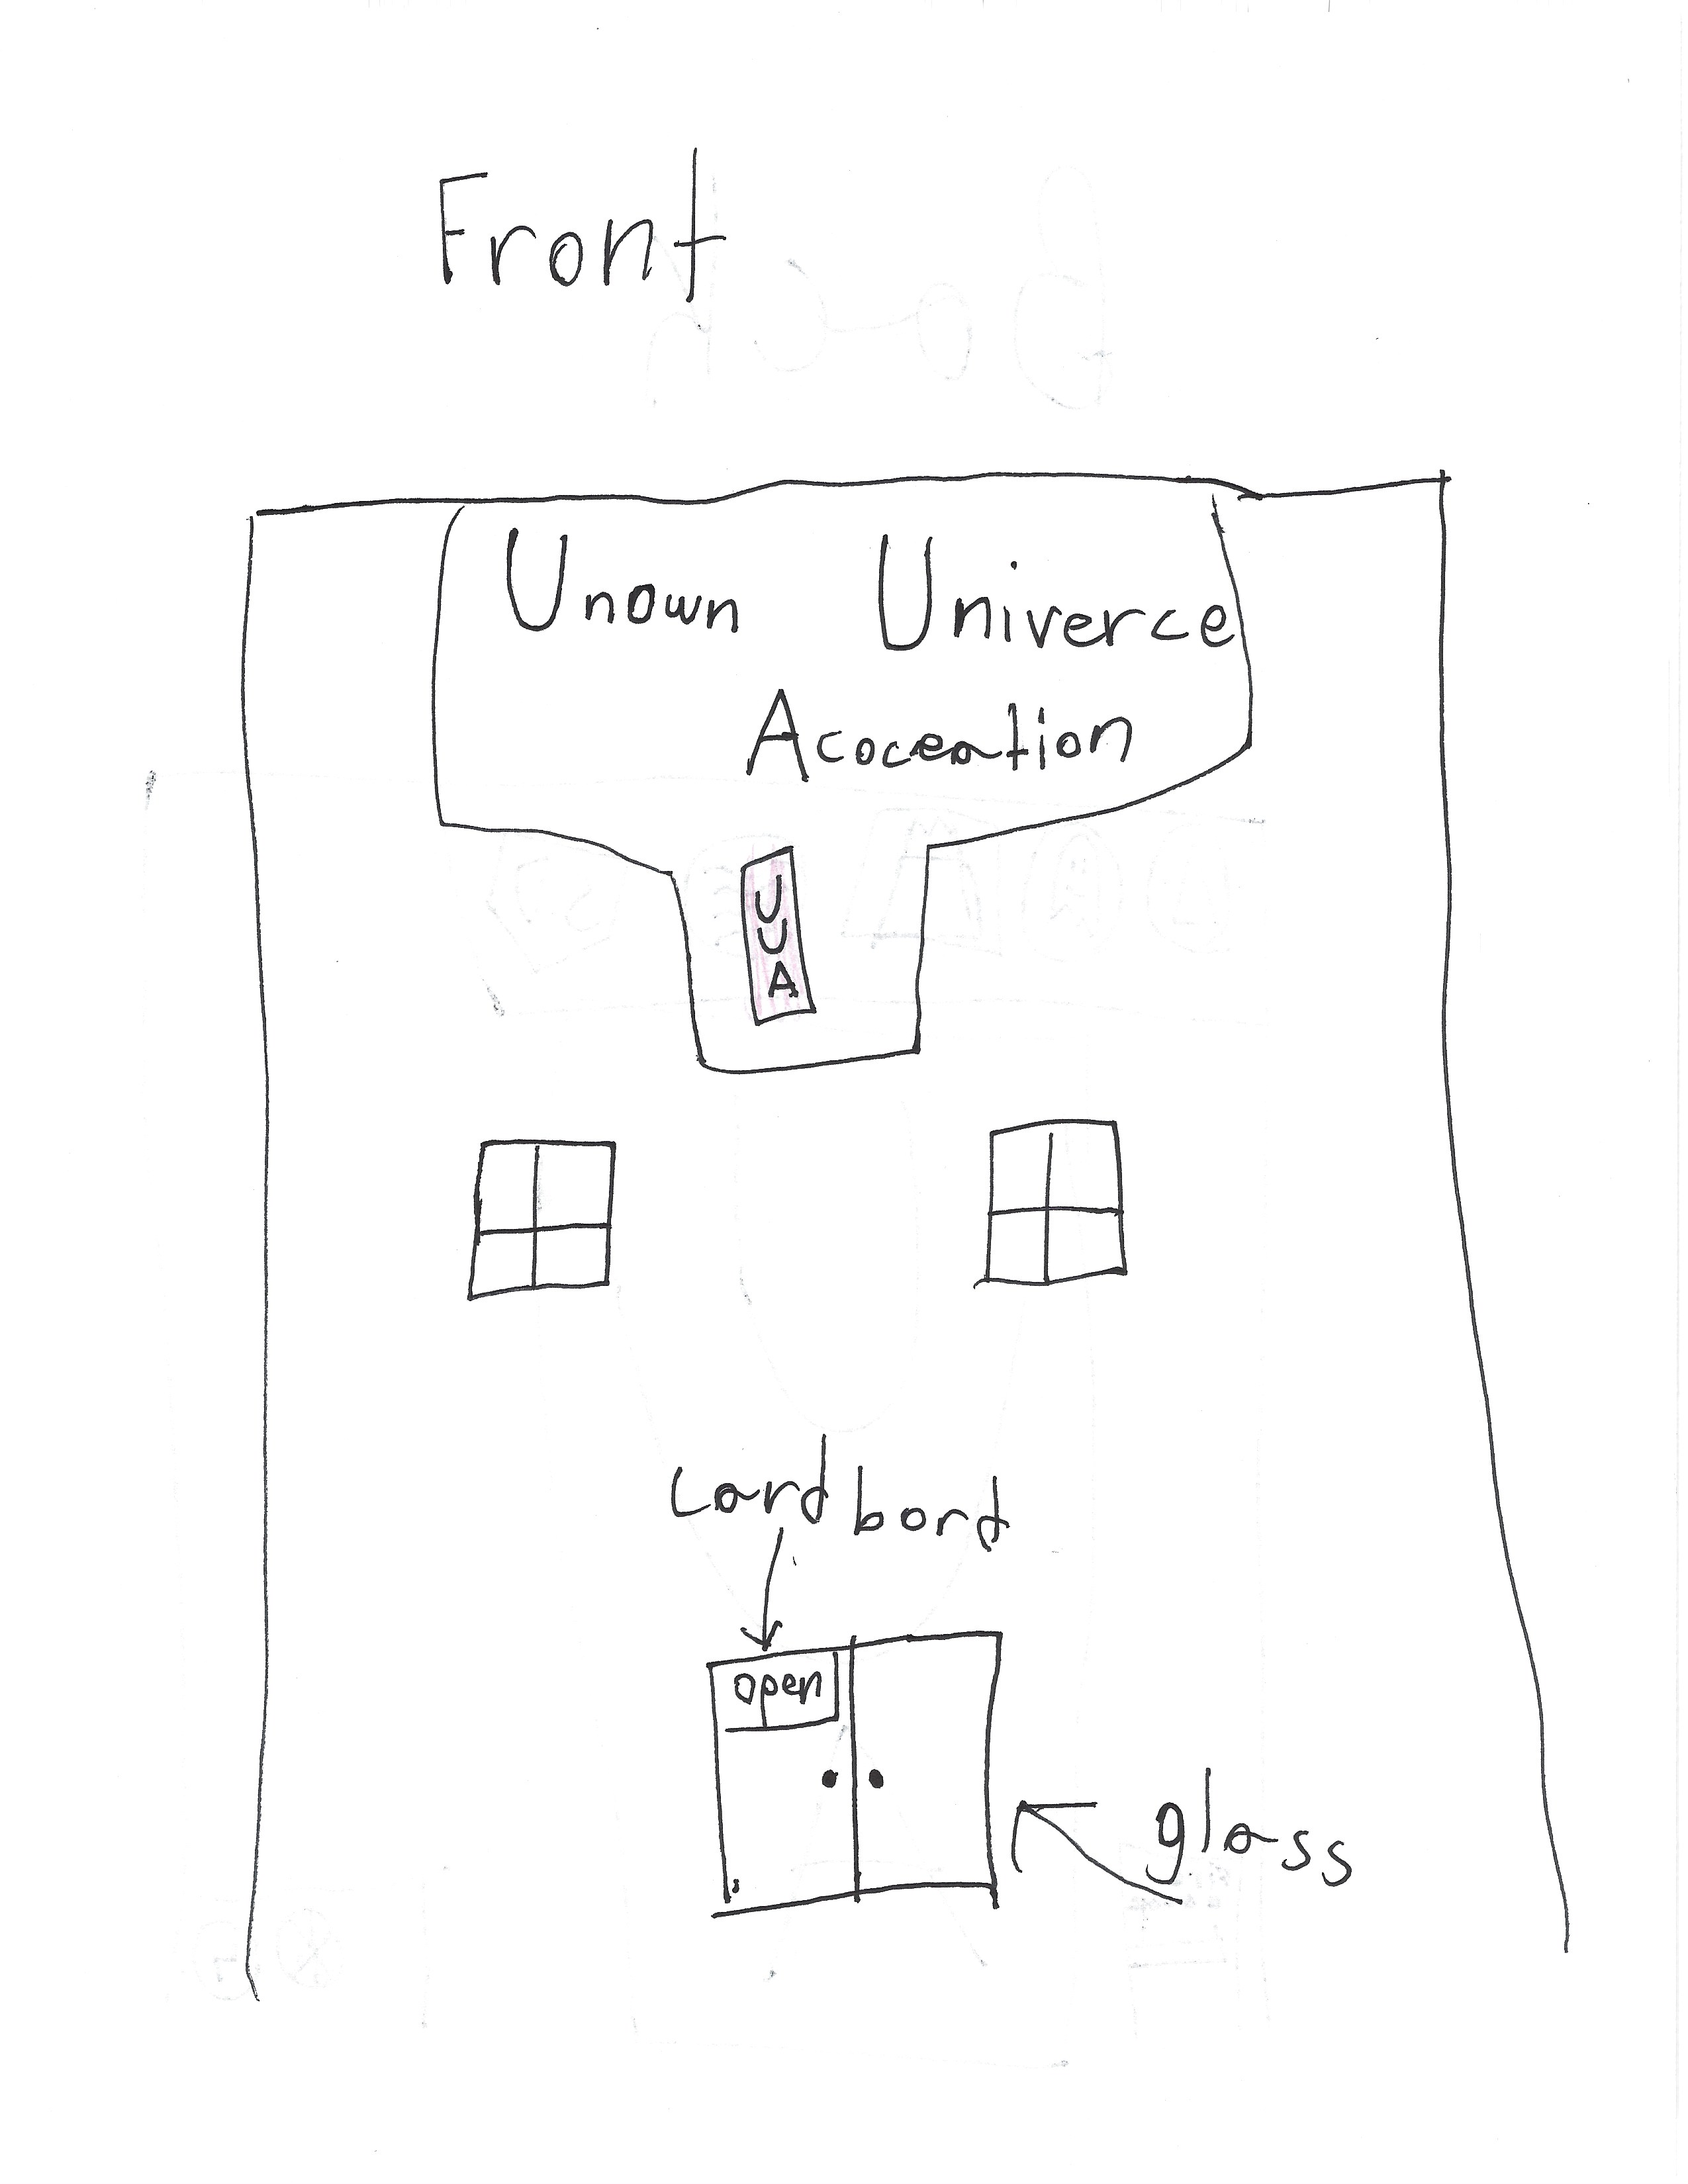 Front
Unown Univerce
Acoceation
U
U
A
cardbord
open
glass